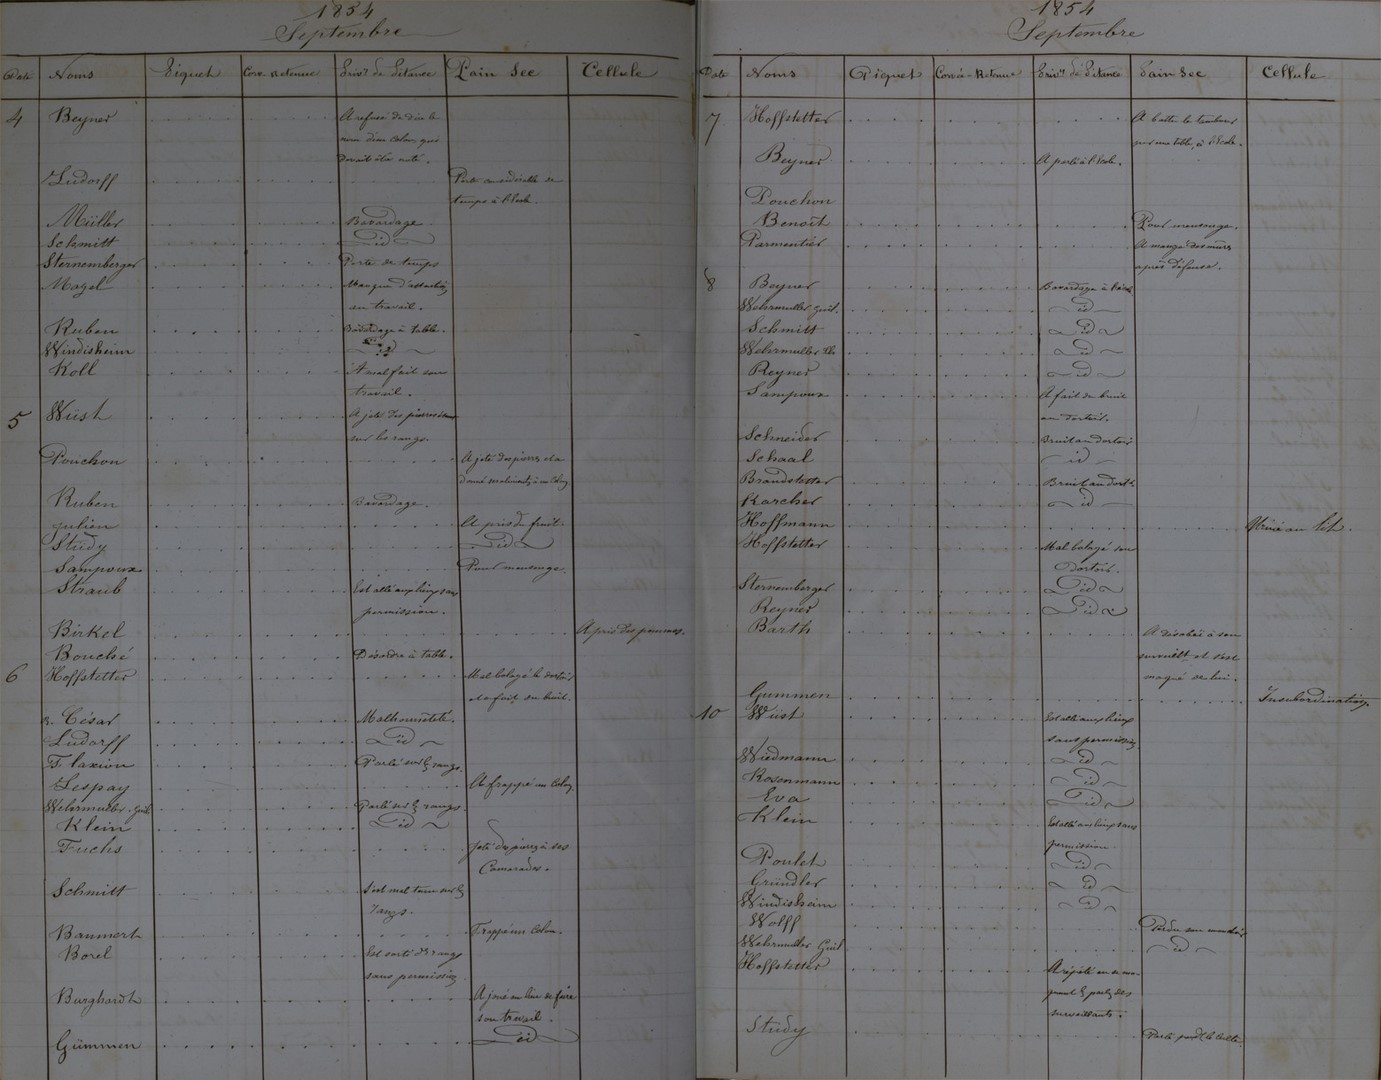 1854
Septembre
Date Noms Piquet Corv. Retenue Priv.on de Pitance Pain Sec Cellule
4 Beyner A refusé de dire le
nom d'un colon qui
devait être noté.
Ludorff Perte de
temps à l'école.
Müller Bavardage
Schmitt id
Sternemberger Perte de temps
Mazel Manque d'attention
au travail.
Ruben Bavardage à table.
Windisheim id
Koll A mal fait son
travail.
5 Wüst A jeté des pierres
sur les rangs.
Pouchon A jeté des pierres et a
donné
Ruben Bavardage.
Julien A pris du fruit.
Stüdy id
Sampoux Pour mensonge.
Straub Est allé aux lieux sans
permission.
Birkel A pris des pommes.
Bouché Désordre à table.
6 Hoffstetter Mal balayé le dortoir
et a fait du bruit.
César Malhonnêteté.
Ludorff id
Flaxion Parlé sur les rangs.
Lespay A frappé un Colon
Wehrmuller. Guil Parlé sur les rangs.
Klein id
Fuchs Jeté des pierres à ses
Camarades.
Schmitt S'est mal tenu sur les
rangs.
Baumert Frappé un Colon.
Borel Est sorti des rangs
sans permission
Burghardt A joué au lieu de faire
son travail.
Gümmen id
1854
Septembre
Date Noms Piquet Corvée-Retenue Priv.on de Pitance Pain Sec Cellule
7 Hoffstetter A battu le tambour
sur une table, à l'école.
Beyner A parlé à l'école.
Pouchon
Benoît Pour mensonge.
Parmentier A mangé des mûres
après défense.
8 Beyner Bavardage à l'école
Wehrmuller Guil. id
Schmitt id
Wehrmuller id
Reyner id
Sampoux A fait du bruit
au dortoir.
Schneider Bruit au dortoir
Schaal id
Brandstetter Bruit au dort.r
Karcher id
Hoffmann Uriné au lit
Hoffstetter Mal balayé son
Dortoir.
Sternemberger id
Reyner id
Barth A désobéi à son
surveillt et s'est
moqué de lui.
Gummen Insubordination
10 Wüst Est allé aux lieux
sans permission
Wiedmann id
Rosenmann id
Eva id
Klein Est allé aux lieux sans
permission
Poulet id
Gründler id
Windisheim id
Wolff Perdu son mouchoir
Wehrmuller Guil id
Hoffstetter A répété en se mo-
quant les paroles des
surveillants.
Stüdy Parlé pendt le culte.